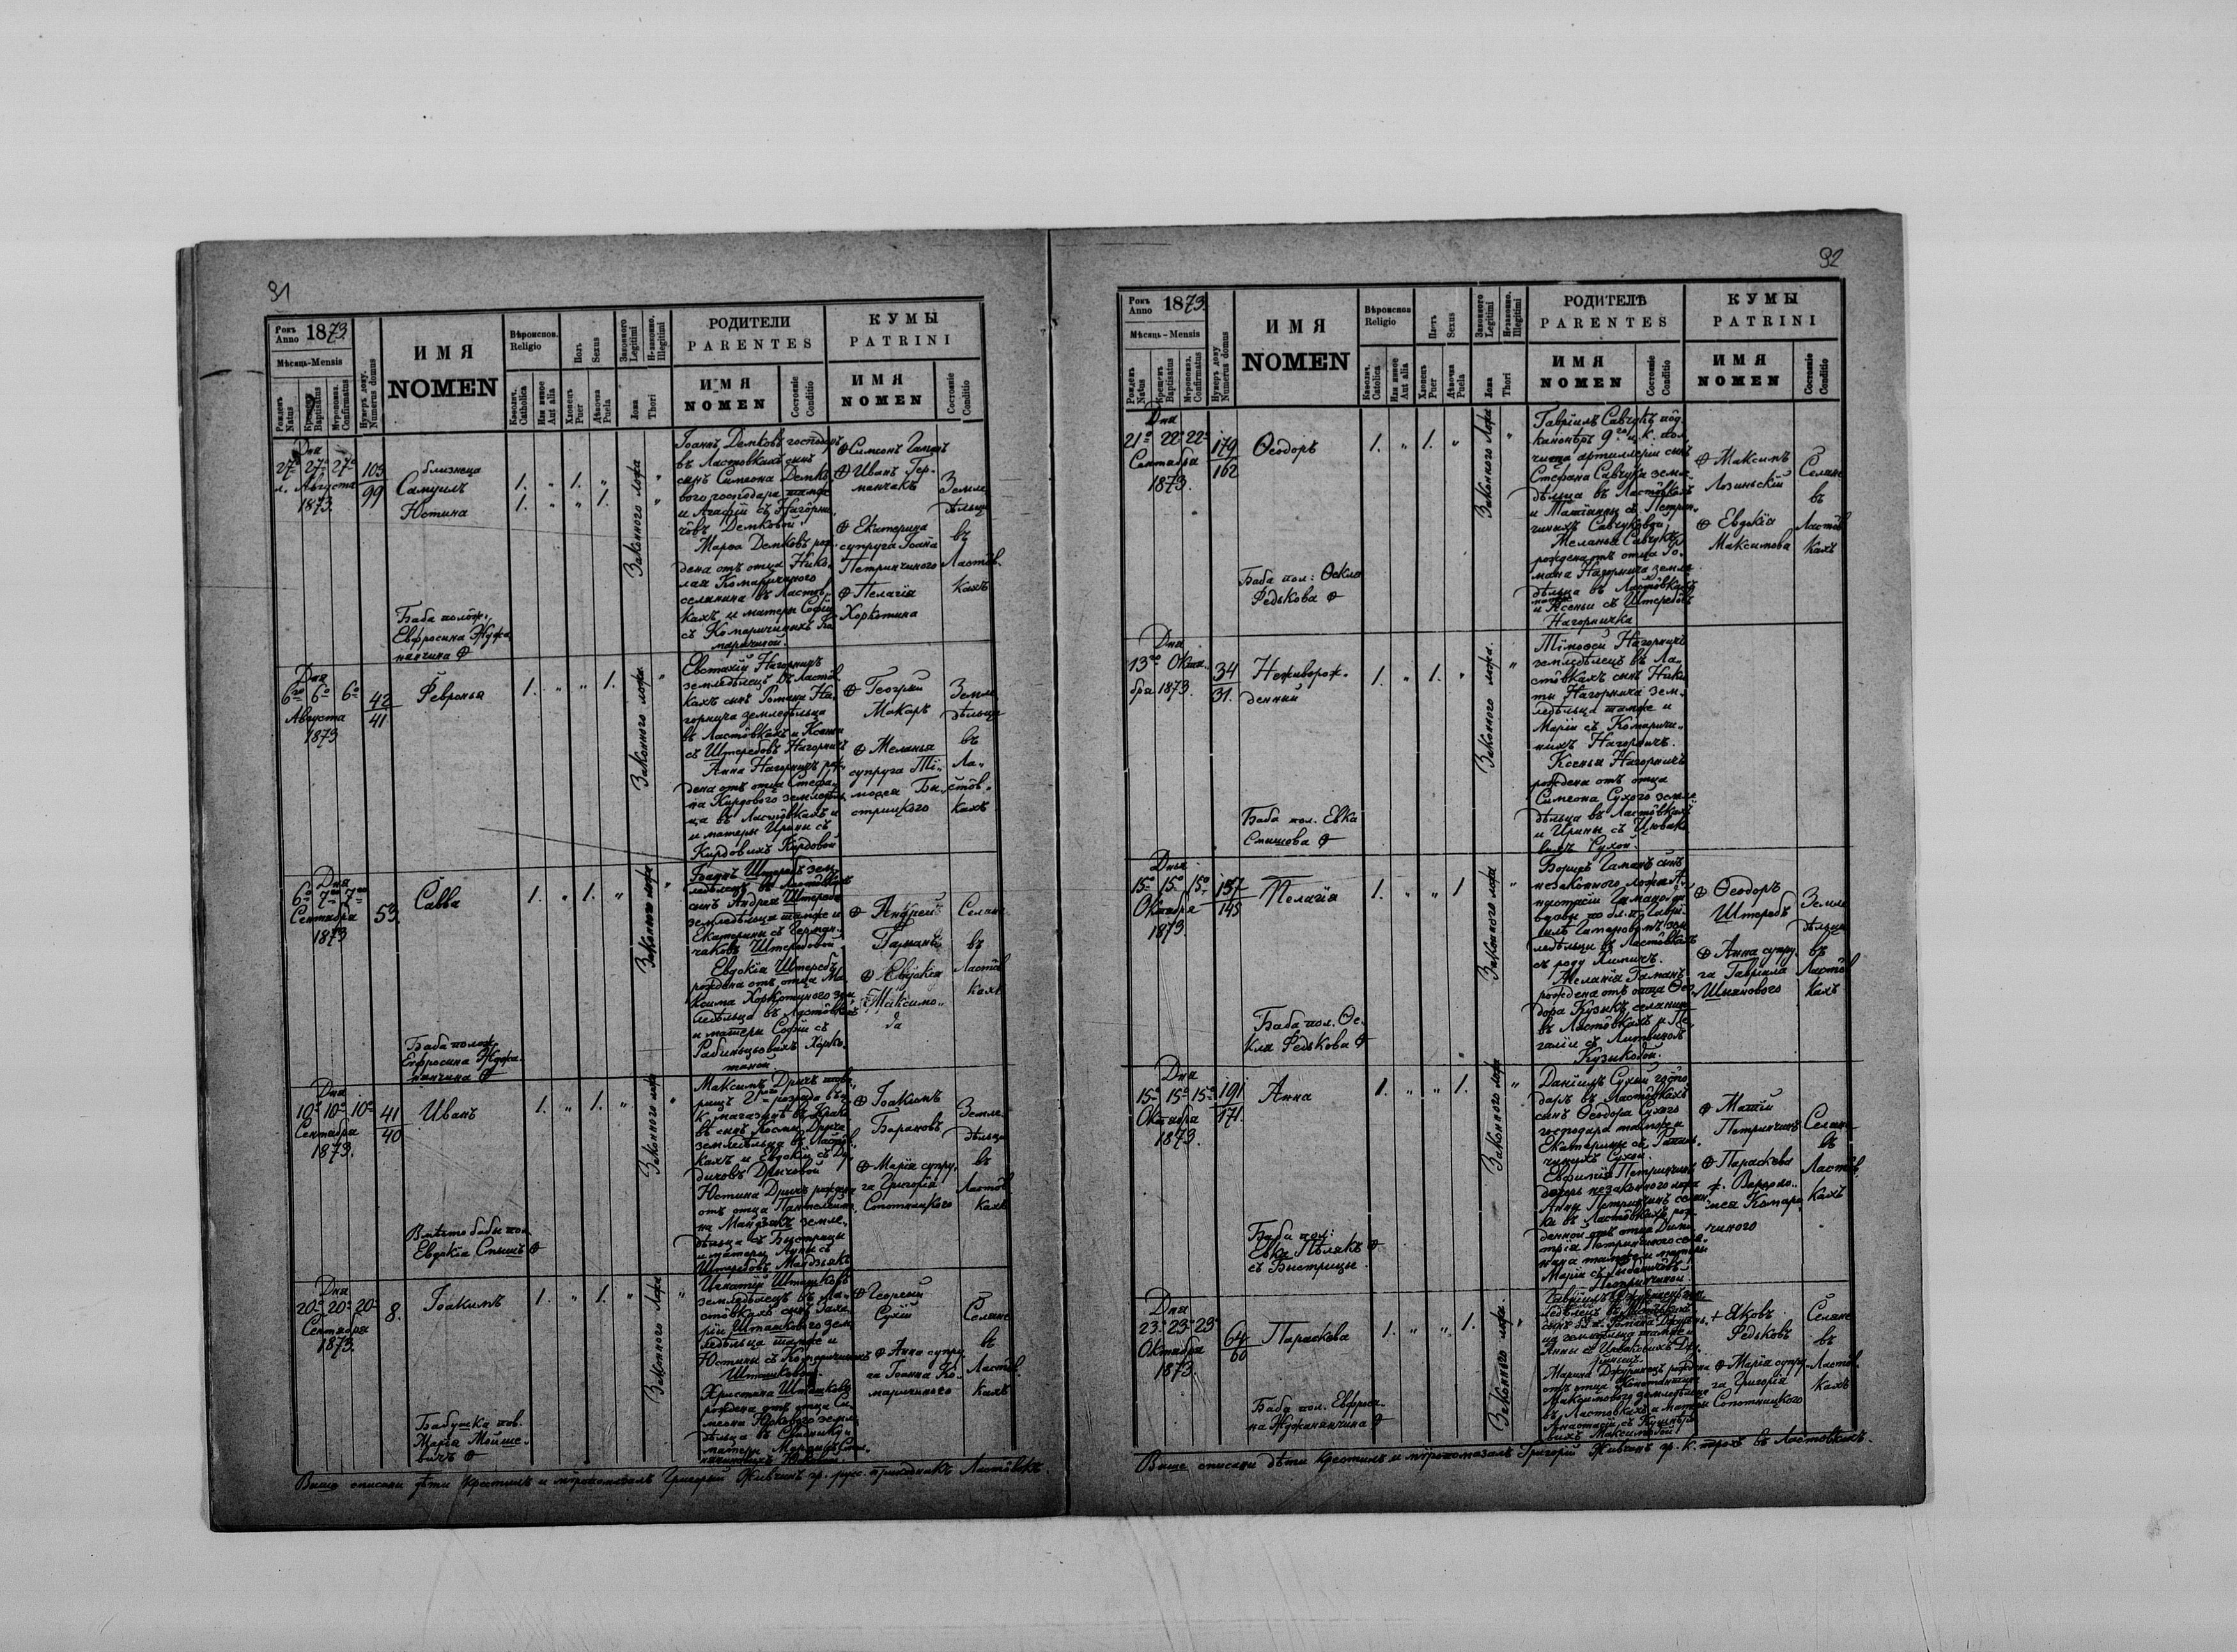 91
Рокъ Anno 1873.
Мѣсяць-Mensis
Рожденъ Natus
Крещенъ Baptisatus
Мѵропомаз. Confirmatus
Нумеръ дому. Numerus domus
ИМЯ
NOMEN
Вѣроиспов. Religio
Каѳолич. Catholica
Или инное Aut alia
Полъ Sexus
Хлопецъ Puer
Дѣвочка Puela
Законного Legitimi
Незаконно. Illegitimi
Ложа Thori
РОДИТЕЛИ
PARENTES
ИМЯ
NOMEN
Состояніе Conditio
КУМЫ
PATRINI
ИМЯ
NOMEN
Состояніе Conditio
Дна
27º 27º 27º
м. Августа
1873.
103
99
близнеца
Самуилъ
Юстина
1. „ 1. „
1. „ „ 1.
Законного ложа
Іоаннъ Демковъ господарь
въ Ластовкахъ сынъ
сынъ Симеона Демко
вого господаря тамже
и Агафіи съ Нагорни
човъ Демковой
Марѳа Демковъ рож
дена отъ отца Нико
лая Комаричиного
селянина въ Ластôв
кахъ и матери Софіи
съ Комаричиныхъ Ко
маричной
Симеонъ Гаманъ
Иванъ Гер-
манчакъ
Екатерина
супруга Іоанна
Петричиного
Пелагія
Хоркотина
Земле
дѣльцы
въ
Ластôв
кахъ
Баба полож.
Евфросина Жуджа
нанчина
Дна
6го 6º 6º
Августа
1873
42
41
Февронья
1. „ „ 1. „
Законного ложа
Евстахій Нагорничъ
земледѣлецъ въ Ластôв
кахъ сынъ Романа На
горнича земледѣльца
въ Ластôвкахъ и Ксении
съ Штеребôвъ Нагорничъ
Анна Нагорничъ рож
дена отъ отца Стефа
на Кирдового земледѣль
ца въ Ластôвкахъ и
и матери Ирины съ
Кирдовихъ Кирдовой
Георгій
Макаръ
Меланья
супруга Ті-
моѳея Би-
стрицкого
Земле
дѣльцы
въ
Ла-
стôв-
кахъ
Дна
6º 7º 7º
Сентября
1873
53.
Савва
1. „ 1. „
Законного ложа
Іоаннъ Штеребъ зем
ледѣлецъ въ Ластôвкахъ
сынъ Андрея Штереба
земледѣльца тамже и
Екатерины съ Герман-
чаковъ Штеребовой
Евдокія Штеребъ
рождена отъ отца Ма
ксима Хоркотиного зем
ледѣльца въ Ластôвкахъ
и матери Софіи съ
Рабинцьовихъ Хорко-
тиной
Андрей
Гаманъ
Евдокія
Максимо-
ва
Селяне
въ
Ластôв
кахъ
Баба полож.
Евфросина Жуджа
нанчина
Дна
10º 10º 10º
Сентября
1873.
41
40
Иванъ
1. „ 1. „ „
Законного ложа
Максимъ Дричъ това
рищъ 2го розряда въ ц.
к. магазинѣ въ Крако
вѣ сынъ Космы Дрича
земледѣльца въ Ластôв
кахъ и Евдокіи съ Ду
диковъ Дричовой
Юстина Дричъ рождена
отъ отца Пантелеимо
на Мандзякъ земле-
дѣльца съ Быстрицы
и матери Анны съ
Штеребовъ Мандзякъ
Іоакимъ
Барановъ
Марія супру
га Григорія
Сопотницкого
Земле
дѣльцы
въ
Ластôв
кахъ
Вмѣсто бабы пол
Евдокія Спишъ
Дна
20º 20º 20º
Сентября
1873.
8.
Іоакимъ
1. „ 1. „ „
Законного ложа
Игнатій Шташковъ
земледѣлецъ въ Ла-
стôвкахъ сынъ Заха
рія Шташкового зем
ледѣльца тамже и
Юстины съ Комаричиныхъ
Шташковой
Христина Шташковъ
рождена отъ отца Си
меона Юркового земле
дѣльца въ
матери
Георгій
Сухій
Анна супру
га Іоанна Ко-
маричиного
Селяне
въ
Ластôв.
кахъ
Бабушка пов.
Марѳа Мойше-
вичъ
Выше описани дѣти крестилъ и мѵропомазалъ Григорій Живчинъ гр. русс. приходникъ Ластôвкъ.
92
Рокъ Anno 1873.
Мѣсяць-Mensis
Рожденъ Natus
Крещенъ Baptisatus
Мѵропомаз. Confirmatus
Нумеръ дому Numerus domus
ИМЯ
NOMEN
Вѣроиспов Religio
Каѳолич. Catolica
Или инное Aut alia
Sexus
Хлопецъ Puer
Дѣвочка Puela
Законного Legitimi
Незаконно. Illegitimi
Ложа Thori
РОДИТЕЛѢ
PARENTES
ИМЯ
NOMEN
Состояніе Conditio
КУМЫ
PATRINI
ИМЯ
NOMEN
Состояніе Conditio
Дна
21º 22º 22º
Сентября
1873.
179
162
Ѳеодоръ
1. „ 1. „ „
Законного ложа
Гавріилъ Савчукъ под
канонѣръ 9го ц. к. пол
чиста артиллеріи сынъ
Стефана Савчука земле
дѣльца въ Ластôвкахъ
и Матіанны съ Петри-
чиныхъ Савчуковой
Меланья Савчукъ
рождена отъ отца Ро-
мана Нагорнича земле
дѣльца въ Ластôвкахъ
и Ксеньи съ Штеребôвъ
Нагорничка
Максимъ
Лозиньскій
Евдокія
Максимова
Селяне
въ
Ластôв
кахъ
Баба пол: Ѳекла
Федькова
Дна
13го Октя-
бра 1873.
34
31.
Неживорож-
денный
1. „ 1. „ „
Законного ложа.
Тімоѳей Нагорничъ
земледѣлецъ въ Ла-
стôвкахъ сынъ Ники
ты Нагорнича зем-
ледѣльца тамже и
Маріи съ Комаричи-
ныхъ Нагорничъ.
Ксенья Нагорничъ
рождена отъ отца
Симеона Сухого земле
дѣльца въ Ластôвкахъ
и Ирины съ Цювако
выхъ Сухой.
Баба пол. Евка
Спишова
Дна
15º 15º 15º
Октября
1873.
157
145
Пелагія
1. „ „ 1 „
Законного ложа
Борисъ Гаманъ сынъ
незаконного ложа А-
настасіи Гамановой
вдовы по бл. п. Гаврі-
илѣ Гамановомъ зем
ледѣльцы въ Ластôвкахъ
съ роду
Меланія Гаманъ
рождена отъ отца Ѳео
дора Кузикъ селянина
въ Ластôвкахъ и Пе
лагіи съ Литвиновъ
Кузиковой.
Ѳеодоръ
Штеребъ
Анна супру
га Гавріила
Земле
дѣльцы
въ
Ластôв
кахъ
Баба пол. Ѳе-
кла Федькова
Дна
15º 15º 15º
Октября
1873.
191
171.
Анна
1. „ „ 1. „
Законного ложа
Даніилъ Сухій госпо
даръ въ Ластôвкахъ
сынъ Ѳеодора Сухого
господара тамже и
Екатерины съ
Сухой.
Евфимія Петричинъ
дочерь незаконного ложа
Анны Петричинъ селян
ки въ Ластôвкахъ рож
денной отъ отца Дими
трія Петричиного селя-
нина тамже и матери
Маріи съ
Петричиной
Матѳій
Петричинъ
Параскева
ж. Варѳоло-
мея Комари
чиного
Селяне
въ
Ластôв.
кахъ
Баба пол:
Евка Пѣлякъ
съ Быстрицы
Дна
23º 23º 23º
Октября
1873.
64
60
Параскева
1. „ „ 1. „
Законного ложа.
Марина
отъ отца Константина
Максимового земледѣльца
въ Ластôвкахъ и матери
Анастасіи съ
Максимовой
Яковъ
Федьковъ
Марія супру
га Григорія
Сопотницкого
Селяне
въ
Ластôв
кахъ
Баба пол. Евфроси-
на Жуджананчина
Выше описани дѣти крестилъ и мѵропомазалъ Григорій Живчинъ гр. к. прох въ Ластôвкахъ.